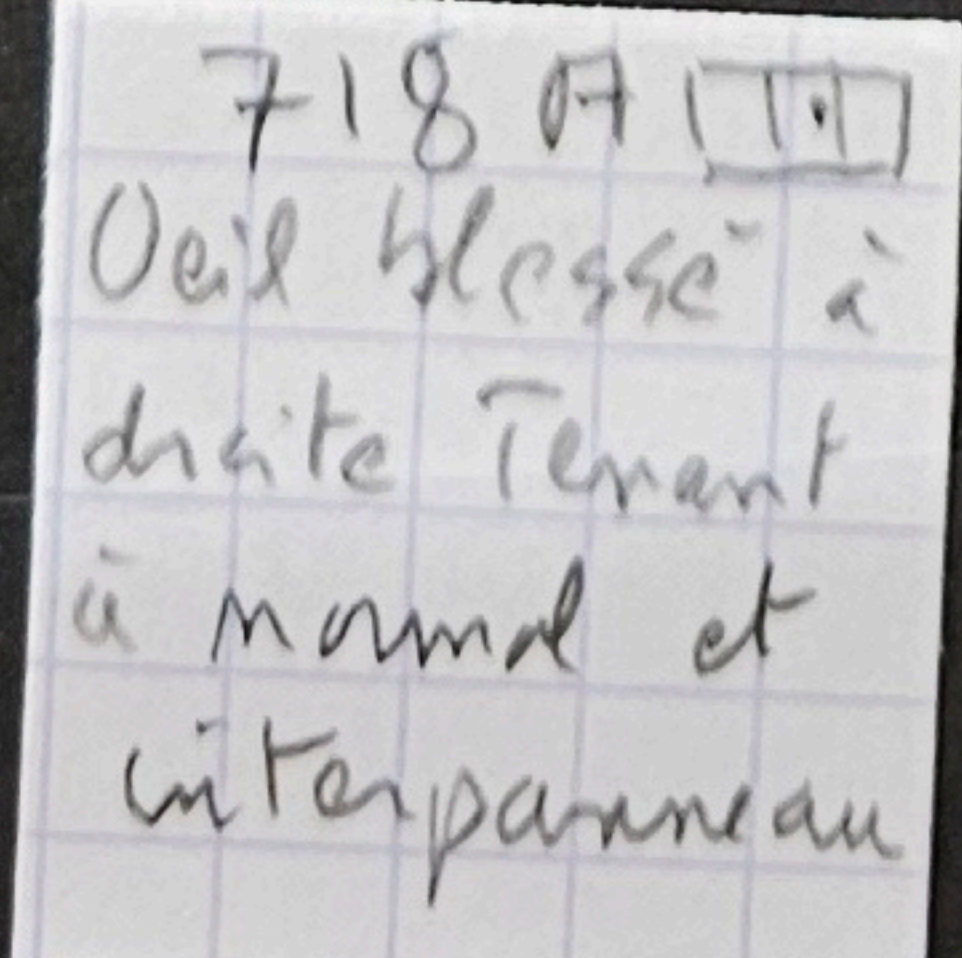 718 A
Oeil blessé à
droite Tenant
à normal et
interpanneau